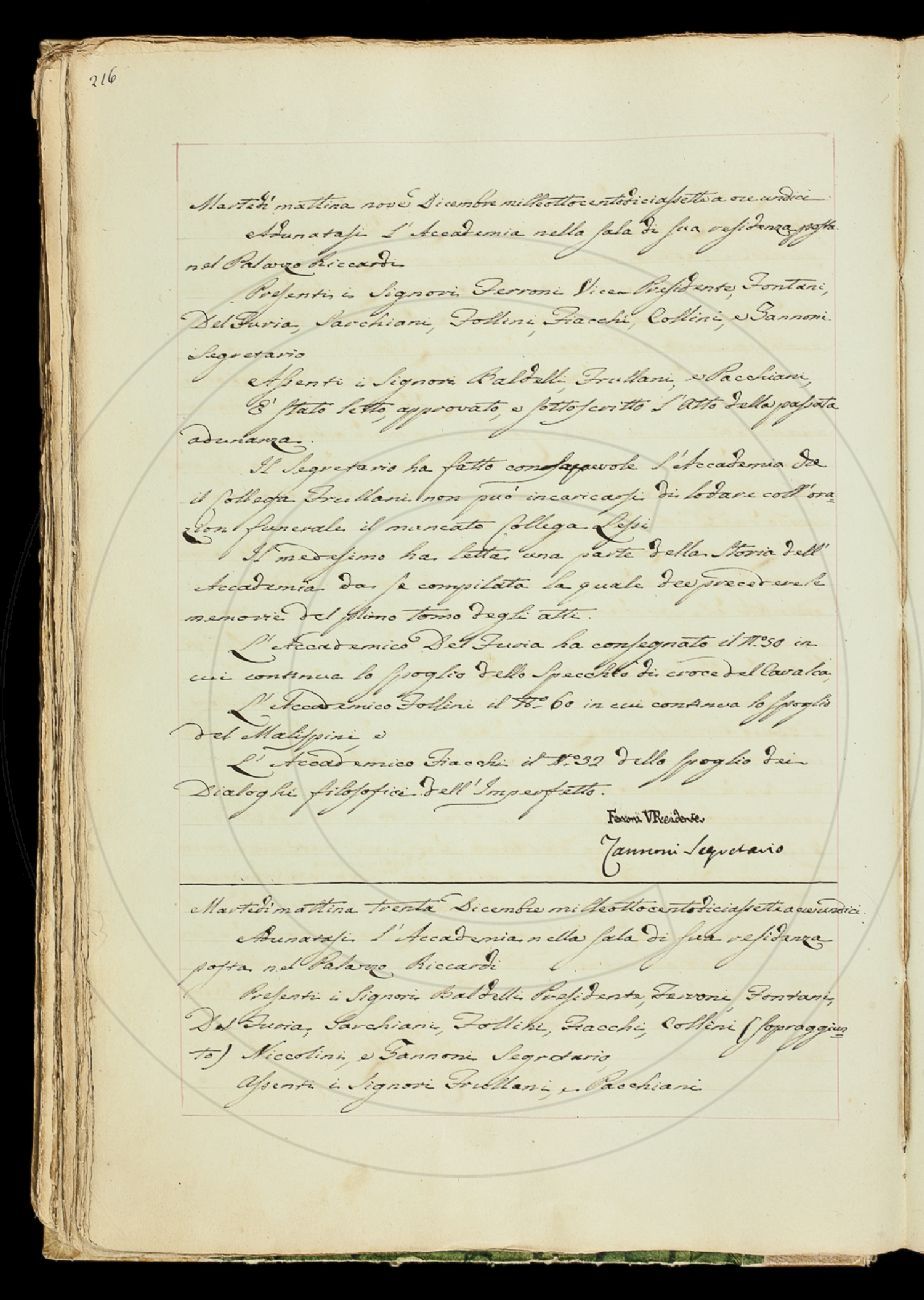 216
Martedì mattina nove Dicembre milleottocentodiciassette a ore undici
Adunatasi l'Accademia nella sala di sua residenza posta
nel Palazzo Riccardi
Presenti i Signori Ferroni Vice-Presidente, Fontani,
Del Furia, Sarchiani, Follini, Fiacchi, Collini, e Zannoni
Segretario
Assenti i Signori Baldelli, Frullani, e Pacchiani,
E' stato letto, approvato, e sottoscritto l'Atto della passata
adunanza.
Il Segretario ha fatto consapevole l'Accademia che
il Collega Frullani non può incaricarsi di lodare coll'ora=
zion funerale il mancato Collega Lessi
Il medesimo ha letta una parte della Storia dell'
Accademia da se compilata la quale dee precedere le
memorie del primo tomo degli atti.
L'Accademico Del Furia ha consegnato il N.º 50 in
cui continua lo spoglio dello Specchio di croce del Cavalca,
L'Accademico Follini il N.º 60 in cui continva lo spoglio
del Malispini, e
L'Accademico Fiacchi il N.º 32 dello spoglio dei
Dialoghi filosofici dell'Imperfetto.
Ferroni VPresidente
Zannoni Segretario
Martedì mattina trenta Dicembre milleottocentodiciassette a ore undici
Adunatasi l'Accademia nella sala di sua residenza
posta nel Palazzo Riccardi
Presenti i Signori Baldelli Presidente, Ferroni, Fontani,
Del Furia, Sarchiani, Follini, Fiacchi, Collini (sopraggiun=
to) Niccolini, e Zannoni Segretario
Assenti i Signori Frullani, e Pacchiani